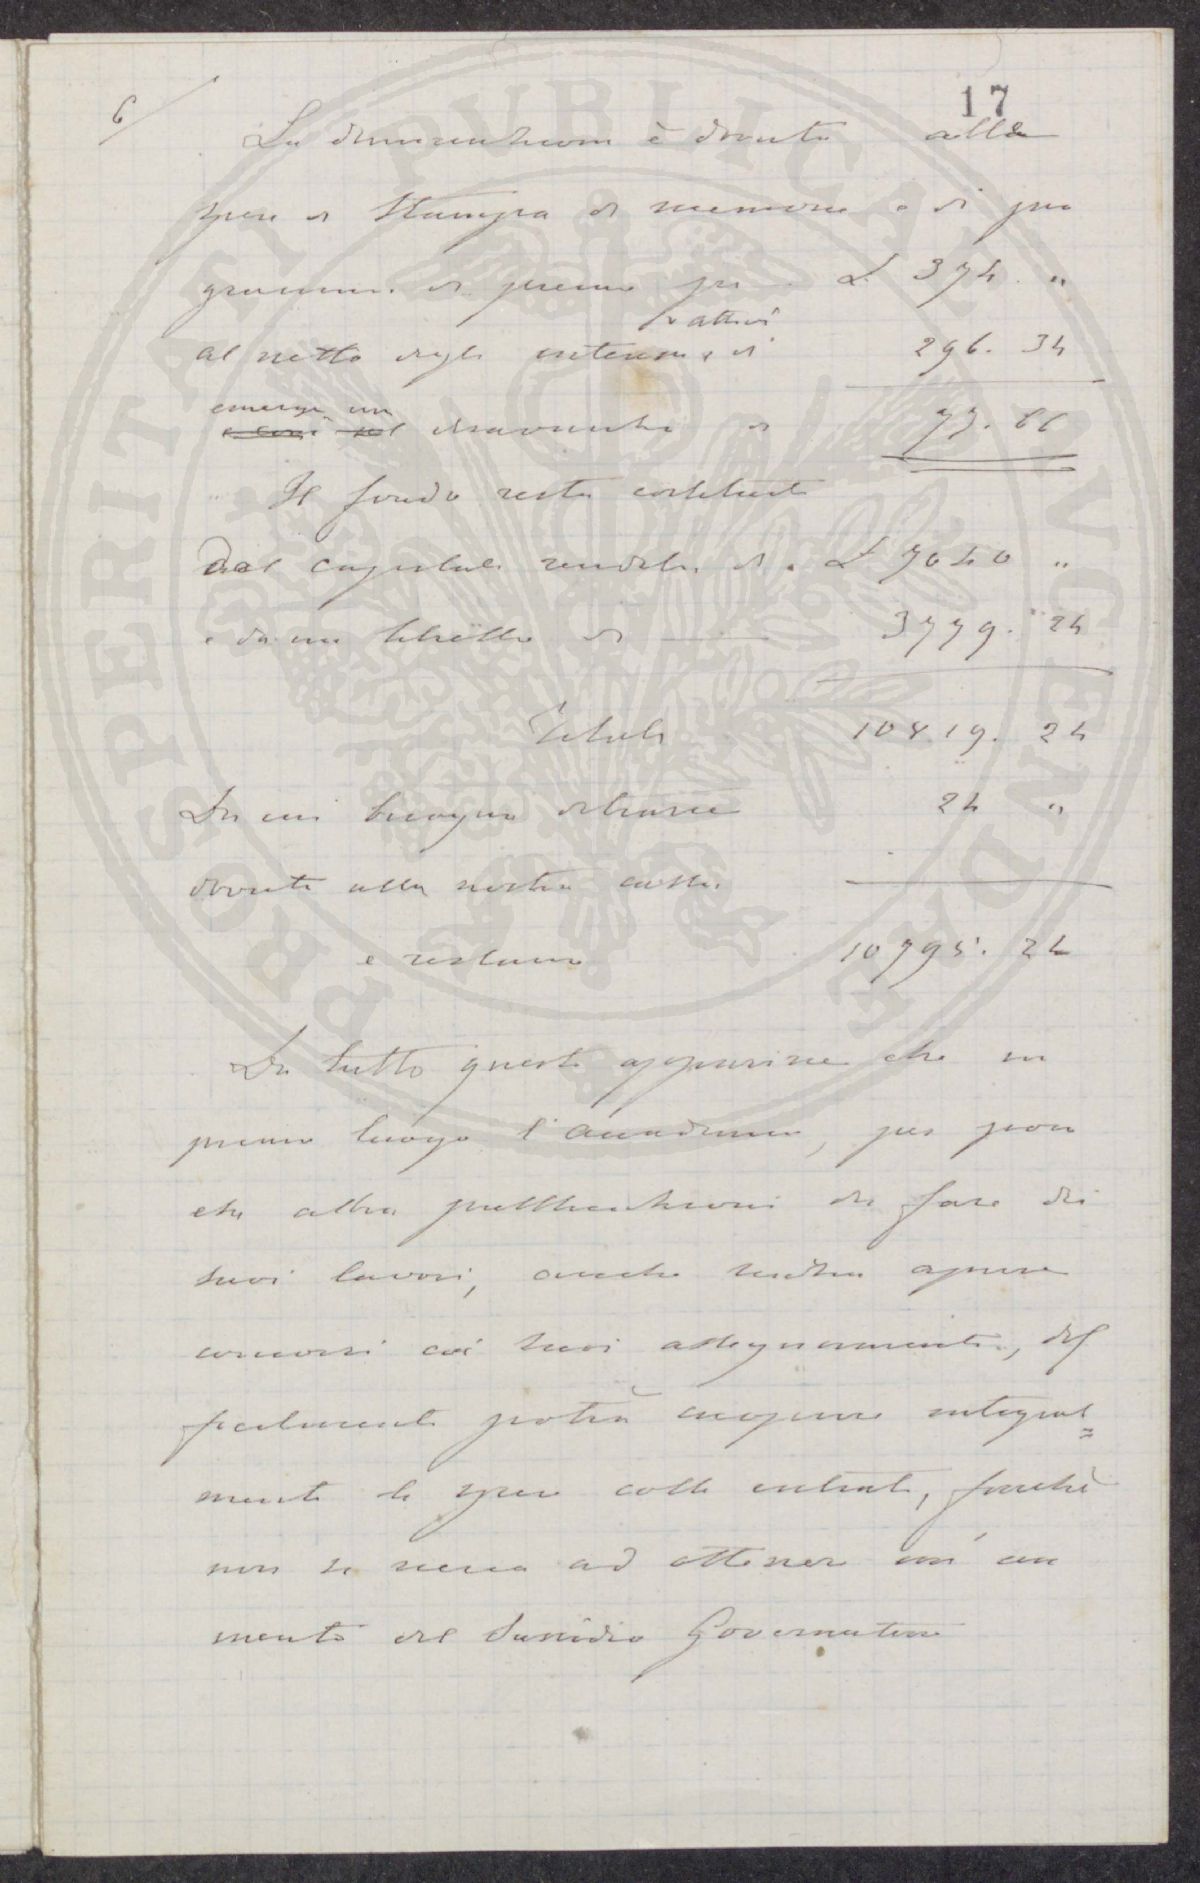 6/
17
La diminuzione è dovuta alle
spese di stampa di memorie e di pro
grammi di premi per L. 374. "
attivi
al netto degli interessi di 296. 34
emerge un
disavanzo di 77. 66
Il fondo resta costituito
Dal capitale rendita di L 7040 "
e da un libretto di 3779. 24
Totale 10819. 24
Da cui bisogna detrarre 24 "
dovute alla nostra cassa
e restano 10795. 24
Da tutto questo apparisce che in
primo luogo l'Accademia, per poco
che abbia pubblicazioni da fare dei
suoi lavori, anche senza aprire
concorsi coi suoi assegnamenti, dif
ficilmente potrà coprire integral
=
mente le spese colle entrate, finchè
non si riesca ad ottenere un' au
mento del Sussidio Governativo
PROSPERITATI PVBLICAE AVGENDAE